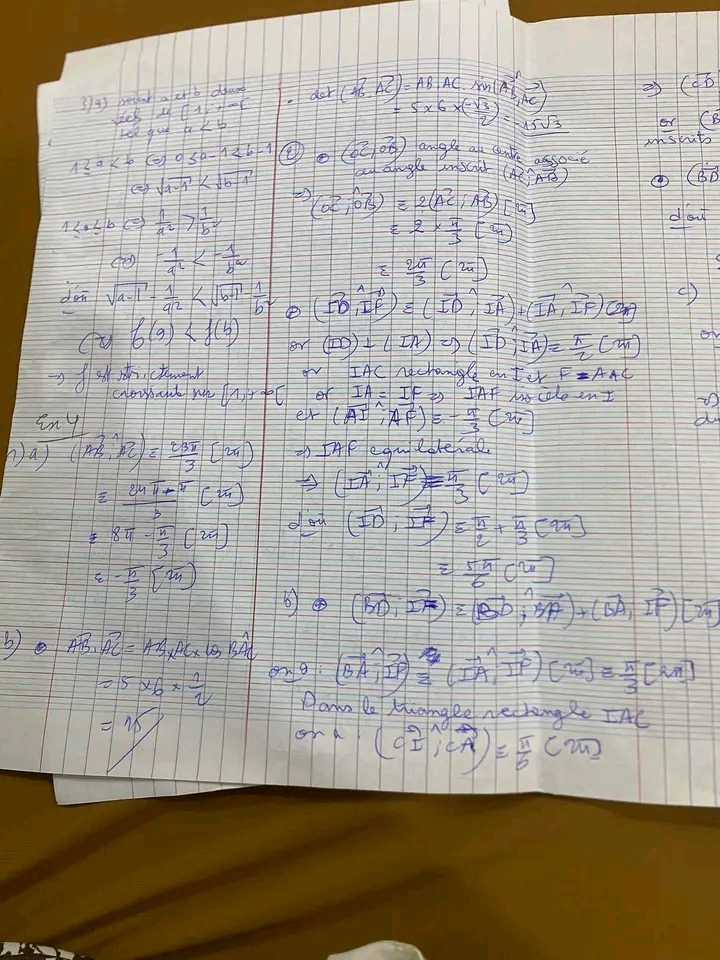 3) a) soient a et b deux
réels de [1, +∞[
tel que a < b
1 ≤ a < b ⇔ 0 ≤ a-1 < b-1
⇔ √(a-1) < √(b-1)
1 ≤ a < b ⇔ 1/a² > 1/b²
⇔ -1/a² < -1/b²
d'où √(a-1) - 1/a² < √(b-1) - 1/b²
⇔ f(a) < f(b)
→ f est strictement
croissante sur [1, +∞[
Ex 4
1) a) (AB ; AC) ≡ 23π/3 [2π]
≡ (24π - π)/3 [2π]
≡ 8π - π/3 [2π]
≡ -π/3 [2π]
b) • AB . AC = AB × AC × cos BAC
= 5 × 6 × 1/2
= 15
• det (AB, AC) = AB . AC . sin (AB, AC)
= 5 × 6 × (-√3/2) = 15√3
2) • (OC ; OB) angle au centre associé
au angle inscrit (AC ; AB)
⇒ (OC ; OB) ≡ 2(AC ; AB) [2π]
≡ 2 × π/3 [2π]
≡ 2π/3 [2π]
• (ID ; IF) ≡ (ID ; IA) + (IA ; IF) [2π]
or (ID) ⊥ (IA) ⇒ (ID ; IA) ≡ π/2 [2π]
or IAC rectangle en I et F = A*AC
or IA = IF ⇒ IAF isocele en I
et (AI ; AF) ≡ -π/3 [2π]
⇒ IAF equilatérale
⇒ (IA ; IF) ≡ π/3 [2π]
d'où (ID ; IF) ≡ π/2 + π/3 [2π]
≡ 5π/6 [2π]
b) • (BD ; IF) ≡ (BD ; BA) + (BA, IF) [2π]
on a : (BA ; IF) ≡ (IA ; IF) [2π] ≡ π/3 [2π]
Dans le triangle rectangle IAC
on a : (CI ; CA) ≡ π/6 [2π]
⇒ (CD
or (B
inscrits
• (BD
d'où
c)
or
⇒)